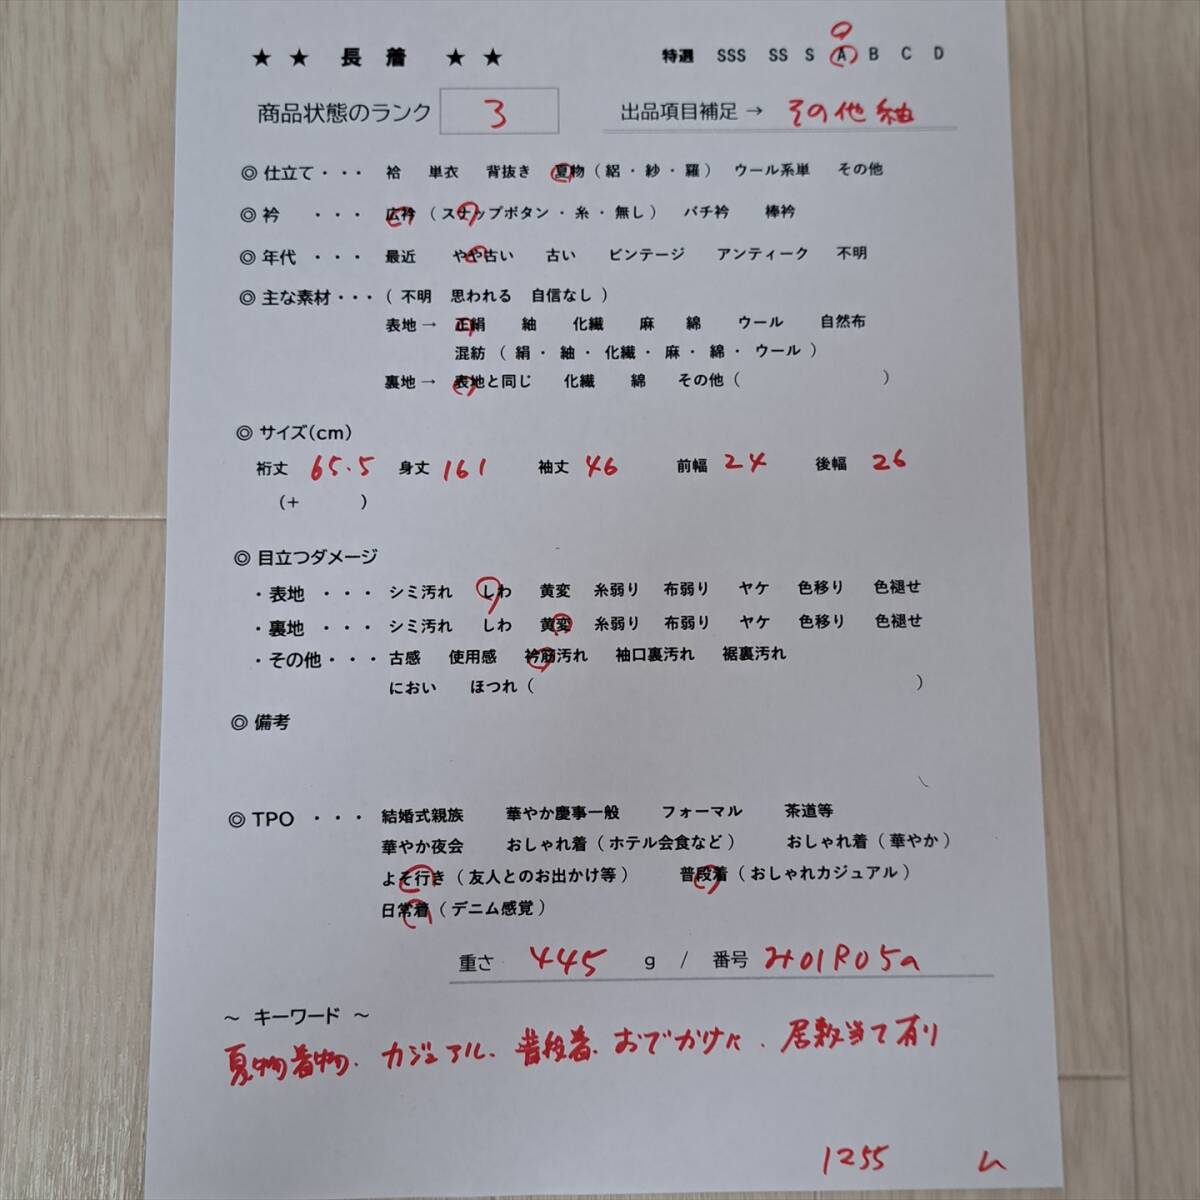 ★ ★ 長 着 ★ ★ 特選 SSS SS S A B C D
商品状態のランク 3 出品項目補足 → その他 紬
◎ 仕立て・・・ 袷 単衣 背抜き 夏物 ( 絽 ・ 紗 ・ 羅 ) ウール系単 その他
◎ 衿 ・・・ 広衿 ( スナップボタン ・ 糸 ・ 無し ) バチ衿 棒衿
◎ 年代 ・・・ 最近 やや古い 古い ビンテージ アンティーク 不明
◎ 主な素材・・・ ( 不明 思われる 自信なし )
表地 → 正絹 紬 化繊 麻 綿 ウール 自然布
混紡 ( 絹 ・ 紬 ・ 化繊 ・ 麻 ・ 綿 ・ ウール )
裏地 → 表地と同じ 化繊 綿 その他 ( )
◎ サイズ(cm)
裄丈 65.5 身丈 161 袖丈 46 前幅 24 後幅 26
(+ )
◎ 目立つダメージ
・表地 ・・・ シミ汚れ しわ 黄変 糸弱り 布弱り ヤケ 色移り 色褪せ
・裏地 ・・・ シミ汚れ しわ 黄変 糸弱り 布弱り ヤケ 色移り 色褪せ
・その他・・・ 古感 使用感 衿筋汚れ 袖口裏汚れ 裾裏汚れ
におい ほつれ ( )
◎ 備考
◎ TPO ・・・ 結婚式親族 華やか慶事一般 フォーマル 茶道等
華やか夜会 おしゃれ着 ( ホテル会食など ) おしゃれ着 ( 華やか )
よそ行き ( 友人とのお出かけ等 ) 普段着 ( おしゃれカジュアル )
日常着 ( デニム感覚 )
重さ 445 g / 番号 H01R05a
～ キーワード ～
夏物着物、カジュアル、普段着、おでかけに、居敷当て有り
1255 ム